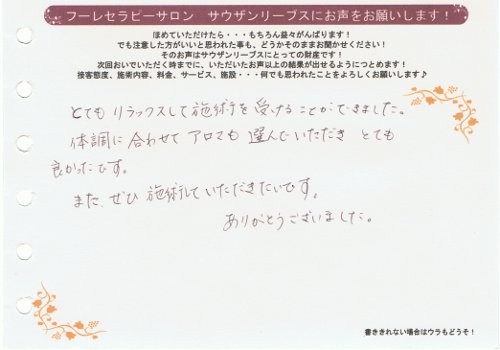 フーレセラピーサロン サウザンリーブスにお声をお願いします！
ほめていただけたら・・・もちろん益々がんばります！
でも注意した方がいいと思われた事も、どうかそのままお聞かせください！
そのお声はサウザンリーブスにとっての財産です！
次回おいでいただく時までに、いただいたお声以上の結果が出せるようにつとめます！
接客態度、施術内容、料金、サービス、施設・・・何でも思われたことをよろしくお願いします♪
とてもリラックスして施術を受けることができました。
体調に合わせてアロマも選んでいただきとても
良かったです。
また、ぜひ施術していただきたいです。
ありがとうございました。
書ききれない場合はウラもどうぞ！